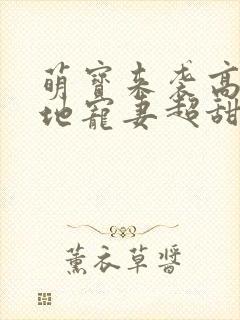 萌寶來袭高
地寵妻超甜
薰衣草醬